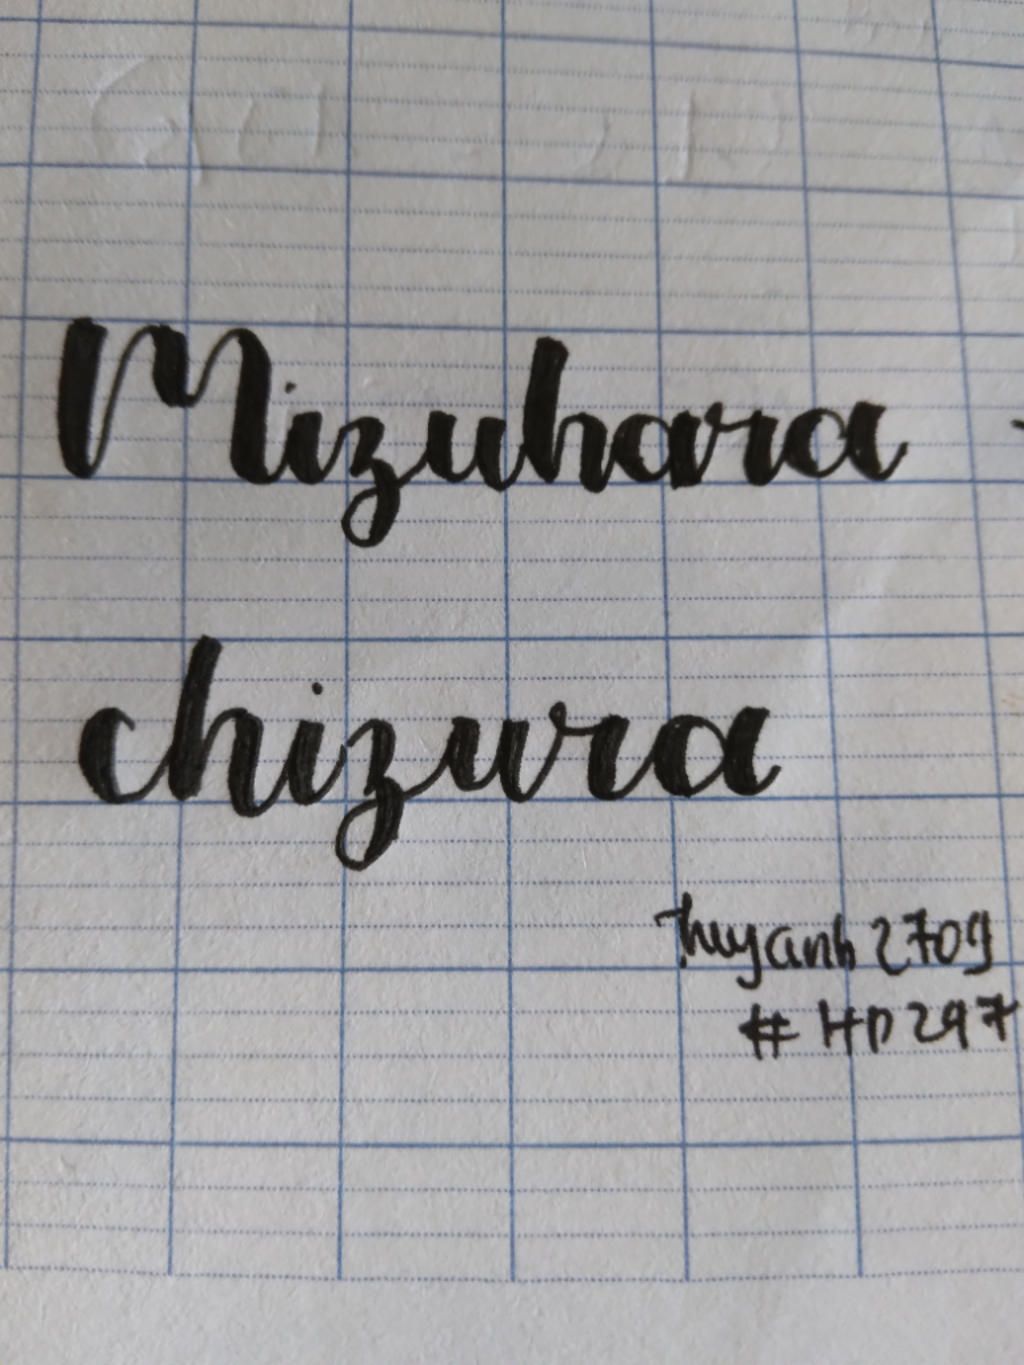 Mizuhara
chizura
thuyanh 2709
# HD 297